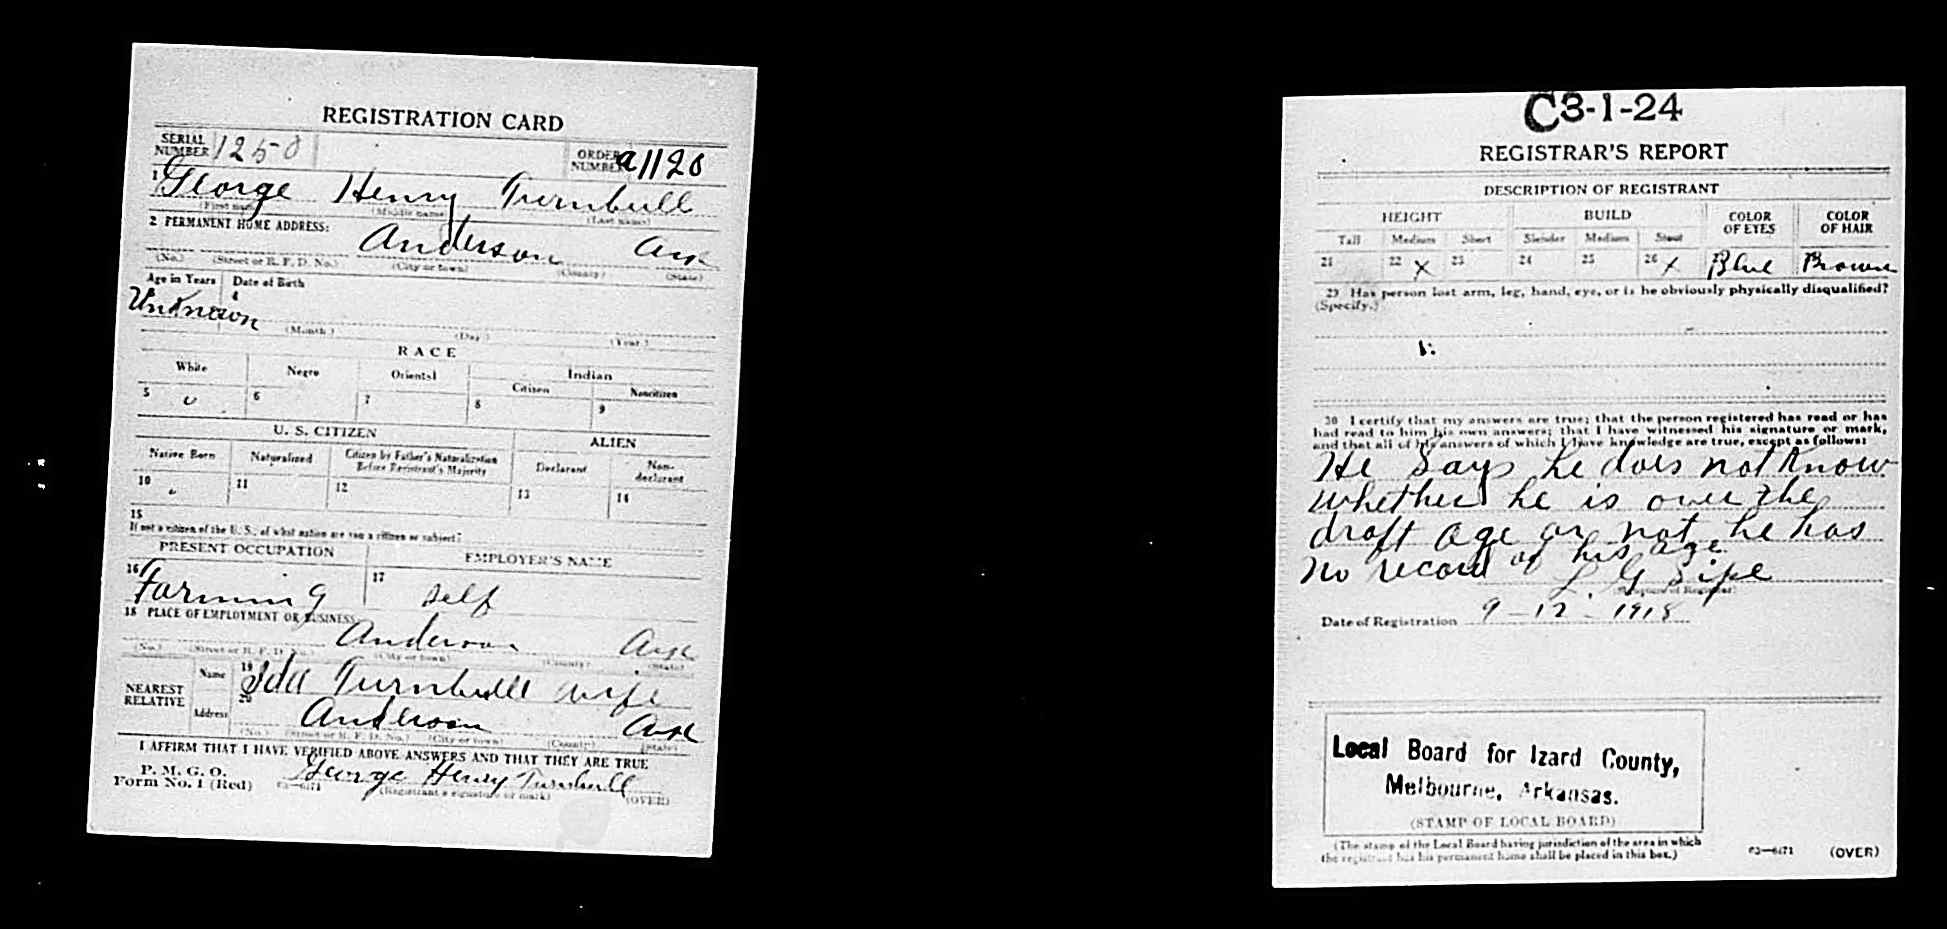 REGISTRATION CARD
SERIAL NUMBER 1250
ORDER NUMBER a1120
1 George Henry Turnbull
(First name) (Middle name) (Last name)
2 PERMANENT HOME ADDRESS:
Anderson Ark
(No.) (Street or R. F. D. No.) (City or town) (County) (State)
Age in Years Date of Birth
4
Unknown
(Month.) (Day.) (Year.)
RACE
White Negro Oriental Indian
Citizen Noncitizen
5 6 7 8 9
U. S. CITIZEN ALIEN
Native Born Naturalized Citizen by Father's Naturalization Before Registrant's Majority Declarant Non-declarant
10 11 12 13 14
15
If not a citizen of the U. S., of what nation are you a citizen or subject?
PRESENT OCCUPATION EMPLOYER'S NAME
16 Farming 17 self
18 PLACE OF EMPLOYMENT OR BUSINESS:
Anderson Ark
(No.) (Street or R. F. D. No.) (City or town) (County) (State)
NEAREST RELATIVE
Name 19 Ida Turnbull wife
Address 20 Anderson Ark
(No.) (Street or R. F. D. No.) (City or town) (County) (State)
I AFFIRM THAT I HAVE VERIFIED ABOVE ANSWERS AND THAT THEY ARE TRUE
P. M. G. O.
Form No. 1 (Red) 03—6171 George Henry Turnbull
(Registrant's signature or mark) (OVER)
C3-1-24
REGISTRAR'S REPORT
DESCRIPTION OF REGISTRANT
HEIGHT BUILD COLOR OF EYES COLOR OF HAIR
Tall Medium Short Slender Medium Stout
21 22 x 23 24 25 26 x 27 Blue Brown
29 Has person lost arm, leg, hand, eye, or is he obviously physically disqualified?
(Specify.)
30 I certify that my answers are true; that the person registered has read or has
had read to him his own answers; that I have witnessed his signature or mark,
and that all of his answers of which I have knowledge are true, except as follows:
He Says he does not Know
whether he is over the
draft age or not he has
no record of his age
L. G Sipe
(Signature of Registrar)
Date of Registration 9 - 12 - 1918
Local Board for Izard County,
Melbourne, Arkansas.
(STAMP OF LOCAL BOARD)
(The stamp of the Local Board having jurisdiction of the area in which
the registrant has his permanent home shall be placed in this box.)
03—6171 (OVER)